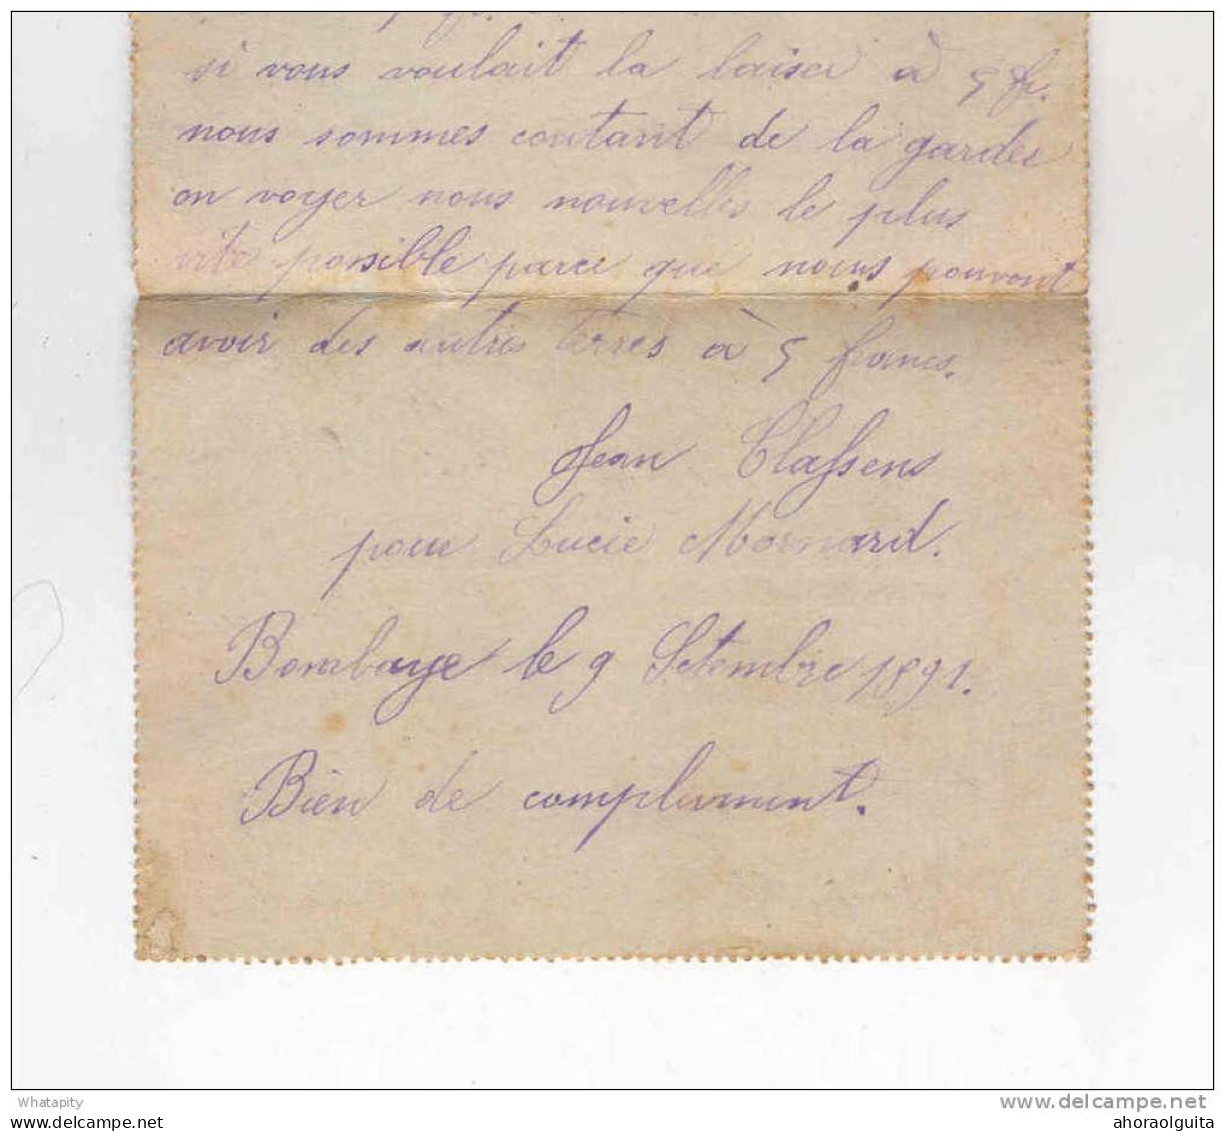 si vous voulait la laiser à 5 fr.
nous sommes contant de la garder
on voyer nous nouvelles le plus
vite possible parce que nous pouvont
avoir des autres terres à 5 francs.
Jean Classens
pour Lucie Mornard.
Bombaye le 9 Setembre 1891.
Bien de compliment.
Whatapity
www.delcampe.net
ahoraolguita